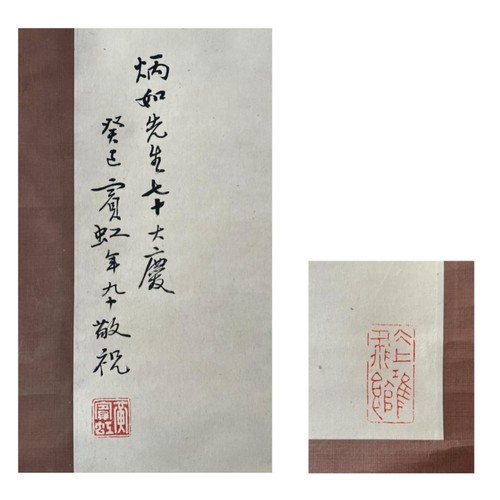 炳如先生七十大慶
癸巳賓虹年九十敬祝
黃賓虹
冰上鴻飛館